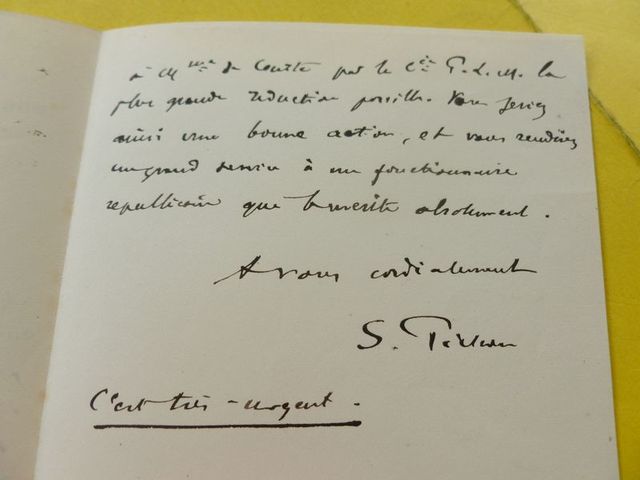 à Mme de Coutte par le Cie P. L. M. la
plus grande réduction possible. Vous feriez
ainsi une bonne action, et vous rendriez
un grand service à un fonctionnaire
republicain que le merite absolument.
A vous cordialement
S. Pichon
C'est très-urgent.